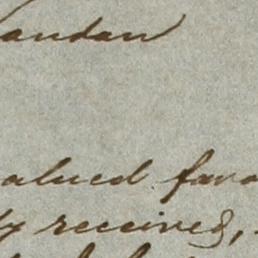 andan
alued favo
ly received,